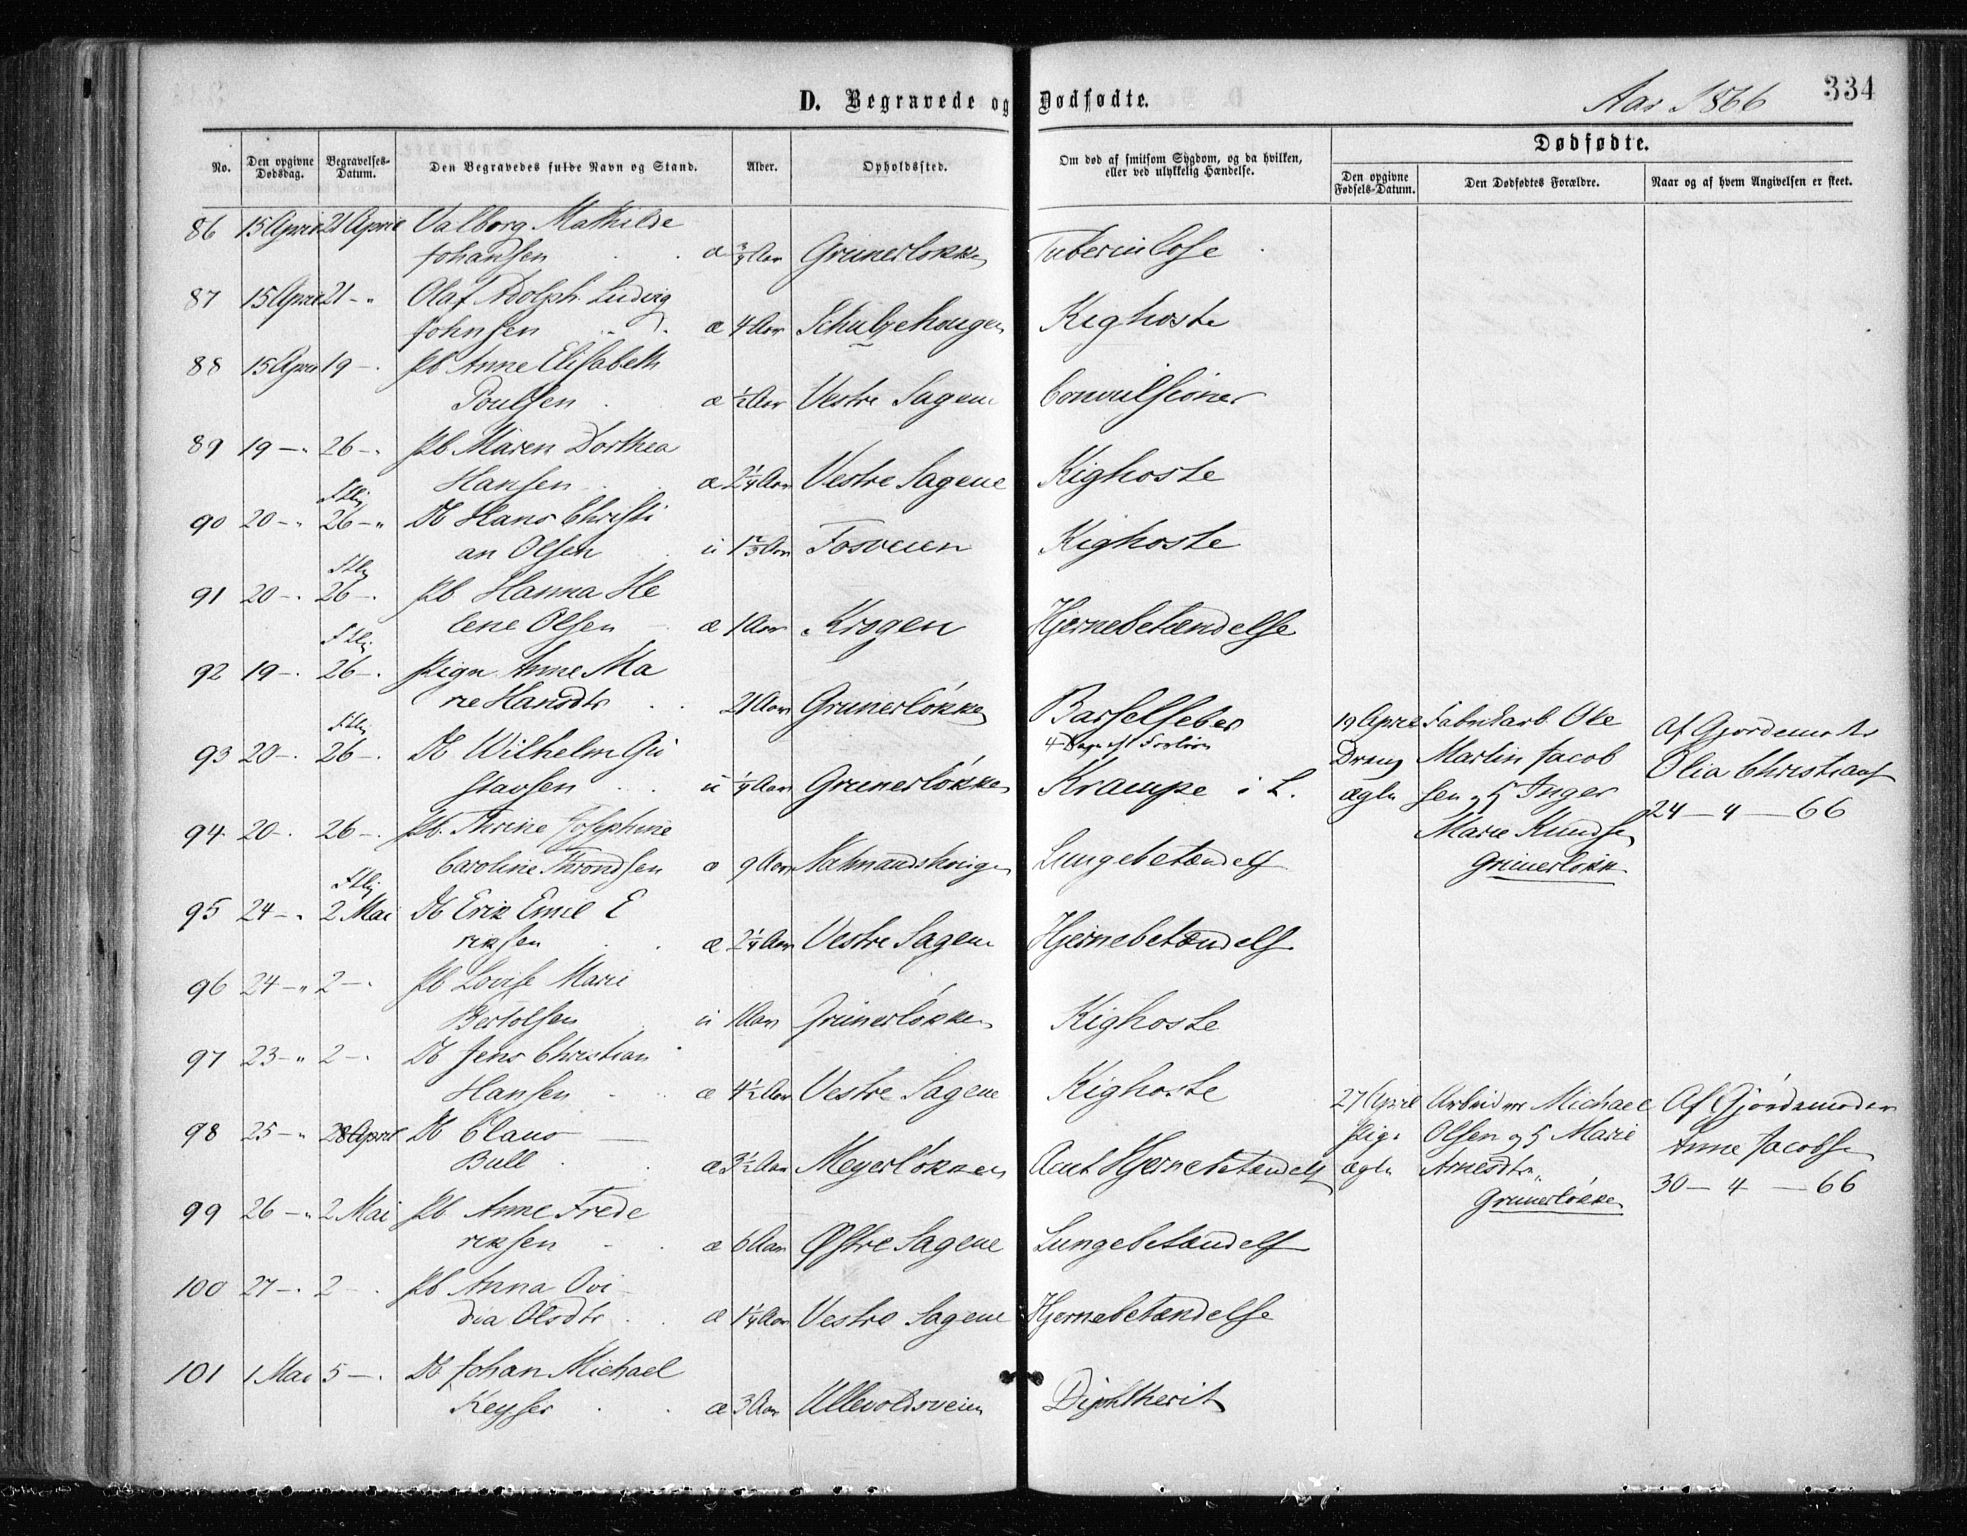 D. Begravede og Dødfødte.
Aar 1866
334
No.
Den opgivne Dødsdag.
Begravelses-Datum.
Den Begravedes fulde Navn og Stand.
Alder.
Opholdssted.
Om død af smitsom Sygdom, og da hvilken, eller ved ulykkelig Hændelse.
Dødfødte.
Den opgivne Fødsels-Datum.
Den Dødfødtes Forældre.
Naar og af hvem Angivelsen er skeet.
86 15 April 21 April Valborg Mathilde
Johansen æ 3/4 Aar Grunerløkken Tuberculose
87 15 April 21 - " Olaf Adolph Ludvig
Johnsen æ 4 Aar Schultzehougen Kighoste
88 15 April 19 - Pb Anne Elisabeth
Poulsen æ 1/2 Aar Vestre Sagene Convulsioner
89 19 - 26 - Pb Maren Dorthea
Hansen æ 2 1/4 Aar Vestre Sagene Kighoste
90 20 - " 26 - " Db Hans Christi
an Olsen u 1 2/3 Aar Fosveien Kighoste
91 20 - 26 - Pb Hanna He
lene Olsen æ 1 Aar Krogen Hjernebetændelse
92 19 - 26 - Pigen Anne Ma
rie Hansdtr 21 Aar Grunerløkken Barselfeber
93 20 - 26 - Db Wilhelm Gu
stavsen u 1/4 Aar Grunerløkken Krampe i L.
94 20 - 26 - Pb. Thrine Josephine
Caroline Throndsen æ 9 Aar Lungebetændelse
95 24 - 2 Mai Db Erik Emil E
riksen æ 2 1/4 Aar Vestre Sagene Hjernebetændelse
96 24 - " 2 - Pb Lovise Marie
Bertolsen u 1 Aar Grunerløkken Kighoste
97 23 - " 2 - Db Jens Christian
Hansen æ 4 1/2 Aar Vestre Sagene Kighoste
98 25 - " 28 April Db Claus
Bull æ 3 1/2 Aar Meyerløkken Acut Hjernebetændelse
99 26 - " 2 Mai Pb. Anne Frede
riksen æ 6 Aar Østre Sagene Lungebetændelse
100 27 - 2 - Pb Anna Ovi
dia Olsdtr æ 1 1/4 Aar Vestre Sagene Hjernebetændelse
101 1 Mai 5 - Db Johan Michael
Keyser æ 3 Aar Ullevoldsveien Diphtherit
19 April
Dreng
ægte
Fabrikarb. Ole
Martin Jacob
sen og Inger
Marie Knudsen
Grunerløkk
Af Gjordemoder
Olia Christians
24 - 4 - 66
27 April
Pige
ægte
Arbeider Michael
Olsen og Marie
Arnesdtr
Grunerløkken
Af Gjordemoder
Anne Jacobsen
30 - 4 - 66